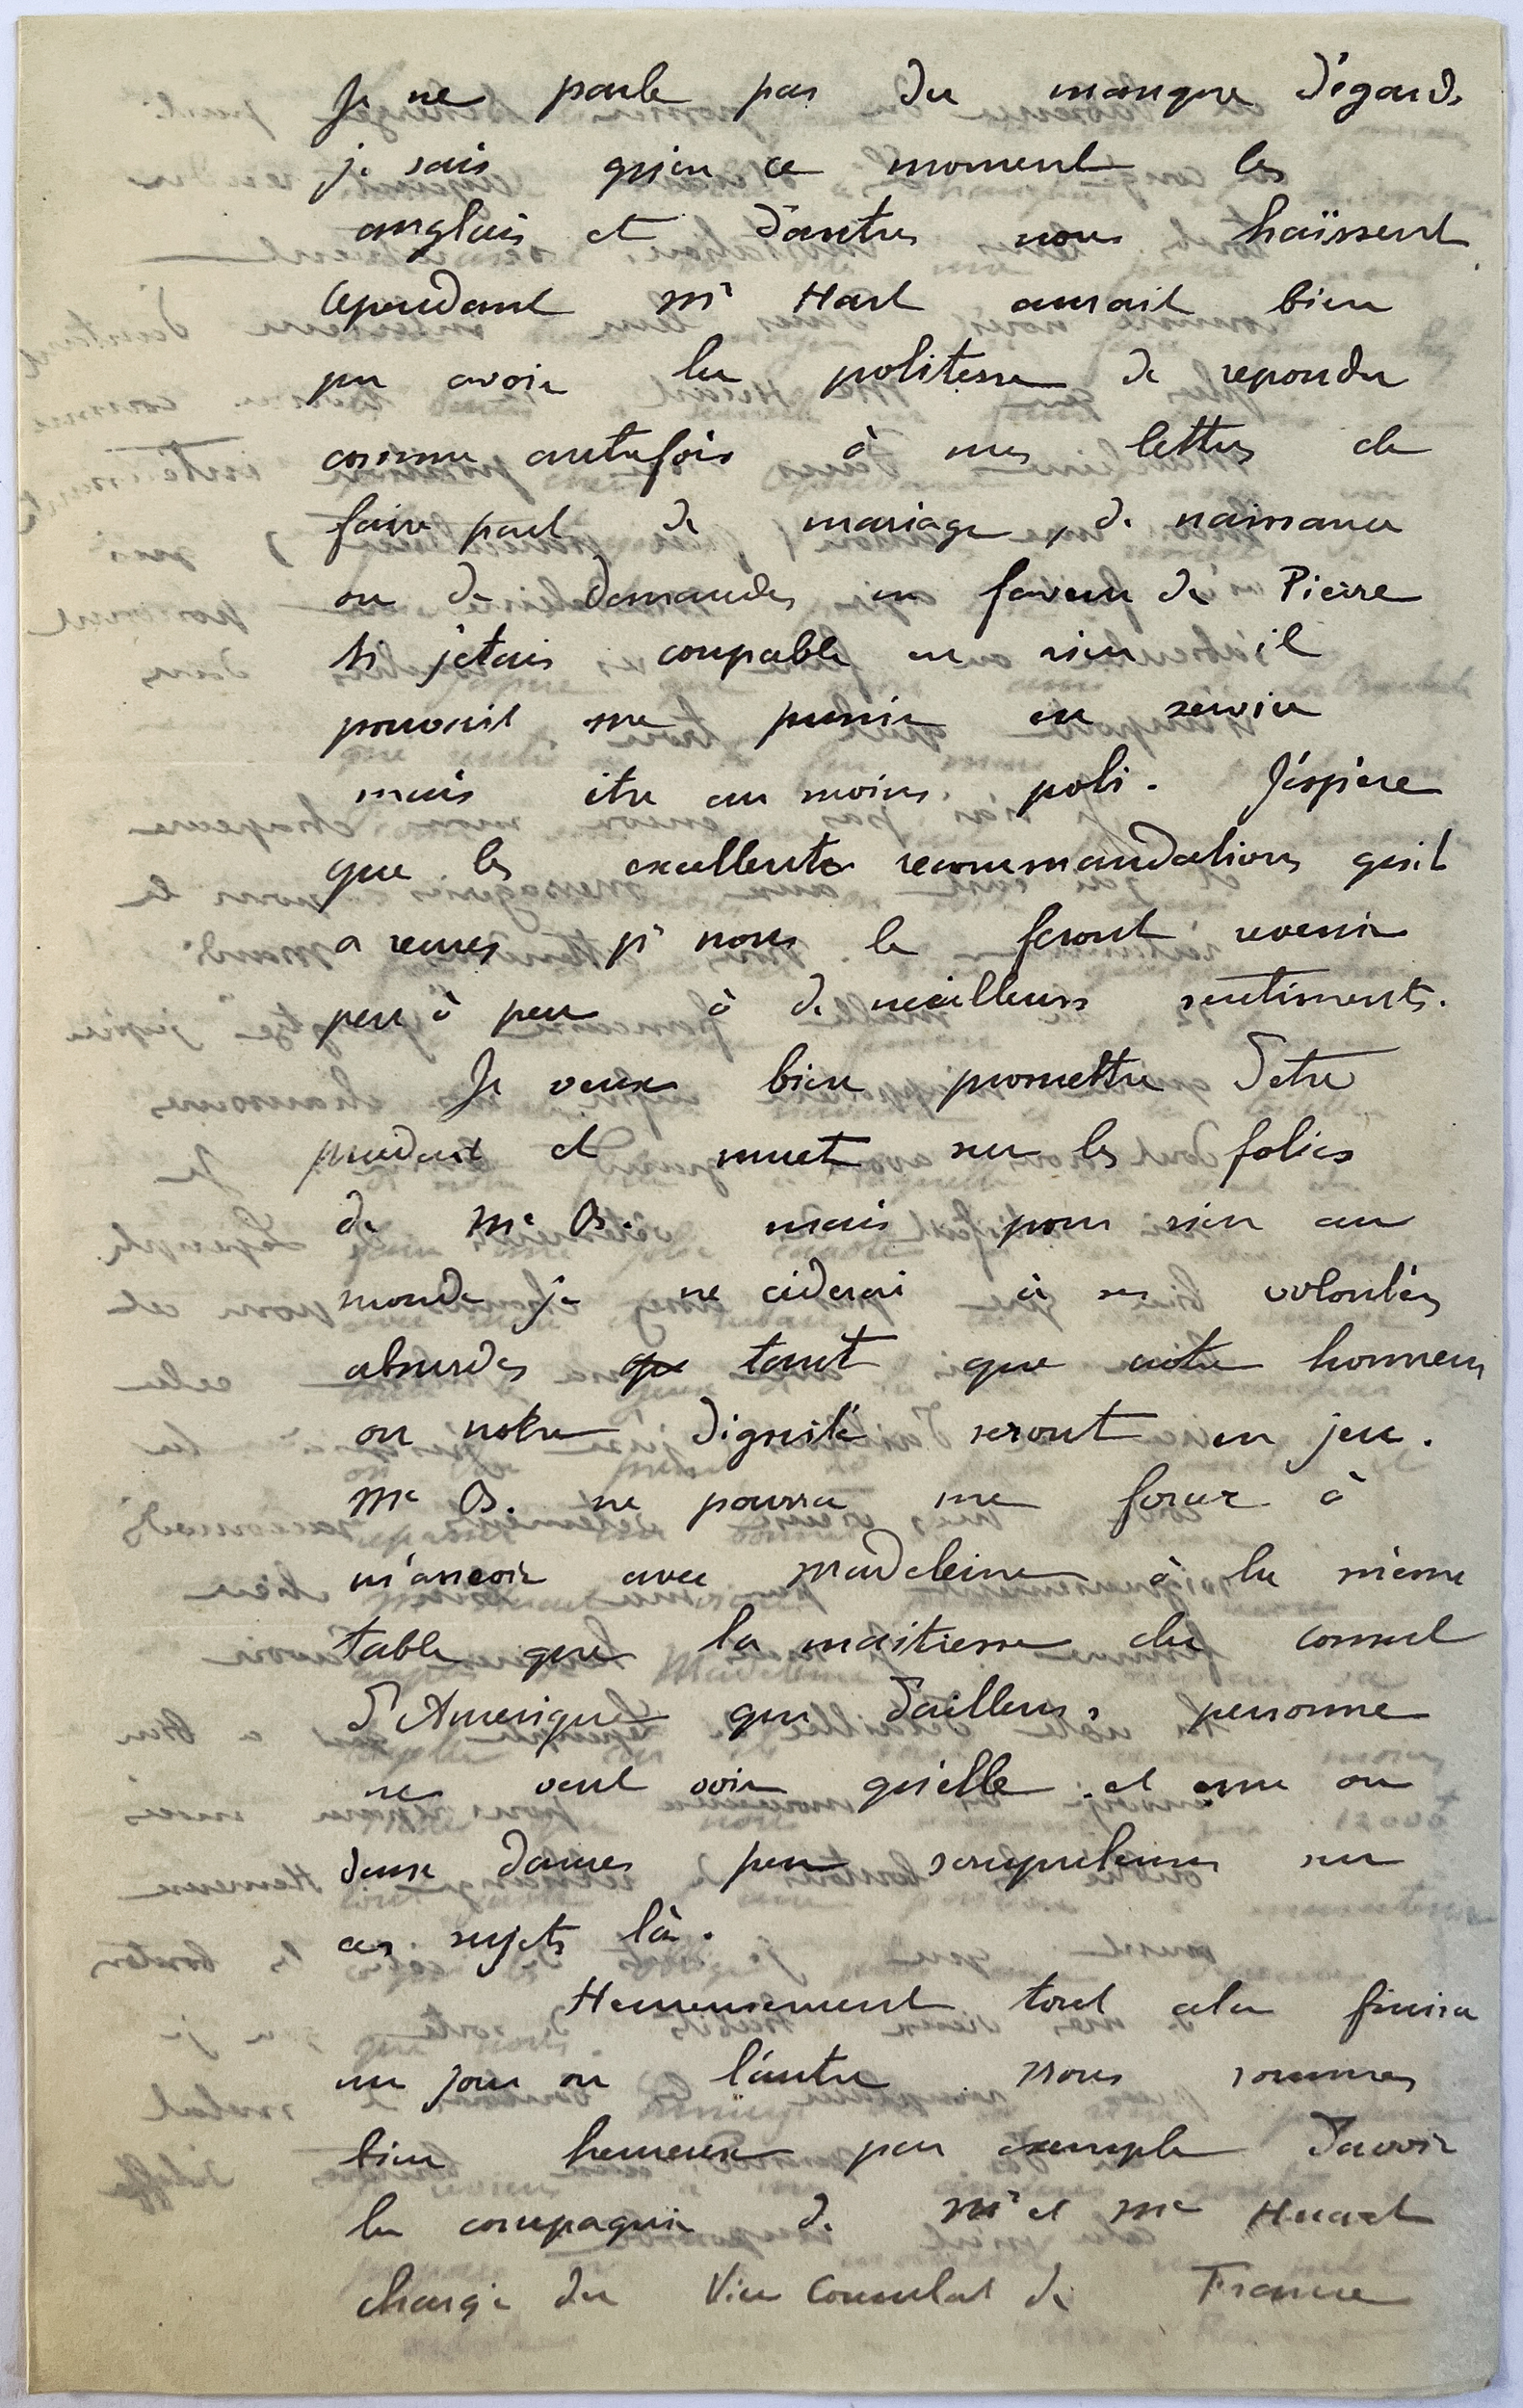 Je ne parle pas du manque d'égards
je sais qu'en ce moment les
anglais et d'autres nous haïssent
Cependant Mr Hart aurait bien
pu avoir la politesse de repondre
comme autrefois à mes lettres de
faire part de mariage, de naissance
ou de demandes en faveur de Pierre
Si j'étais coupable en rien il
pouvait me punir en service
mais être au moins poli. J'espère
que les excellentes recommandations qu'il
a reçues pr nous le feront revenir
peu à peu à de meilleurs sentiments.
Je veux bien promettre d'etre
prudent et muet sur les folies
de Me B. mais pour rien au
monde je ne cèderai à ses volontés
absurdes tant que notre honneur
ou notre dignité seront en jeu.
Me B. ne pourra me forcer à
m'asseoir avec Madeleine à la même
table que la maitresse du consul
d'Amerique que d'ailleurs personne
ne veut voir qu'elle et une ou
deux dames peu scrupuleuses sur
ces sujets là.
Heureusement tout cela finira
un jour ou l'autre nous sommes
bien heureux par exemple d'avoir
la compagnie de Mr et Me Huart
chargé du Vice Consulat de France